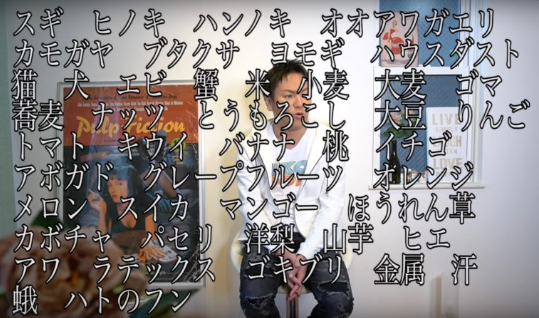 スギ　ヒノキ　ハンノキ　オオアワガエリ
カモガヤ　ブタクサ　ヨモギ　ハウスダスト
猫　犬　エビ　蟹　米　小麦　大麦　ゴマ
蕎麦　ナッツ　とうもろこし　大豆　りんご
トマト　キウイ　バナナ　桃　イチゴ
アボガド　グレープフルーツ　オレンジ
メロン　スイカ　マンゴー　ほうれん草
カボチャ　パセリ　洋梨　山芋　ヒエ
アワ　ラテックス　ゴキブリ　金属　汗
蛾　ハトのフン
Pulp Fiction
LIVE
LOVE